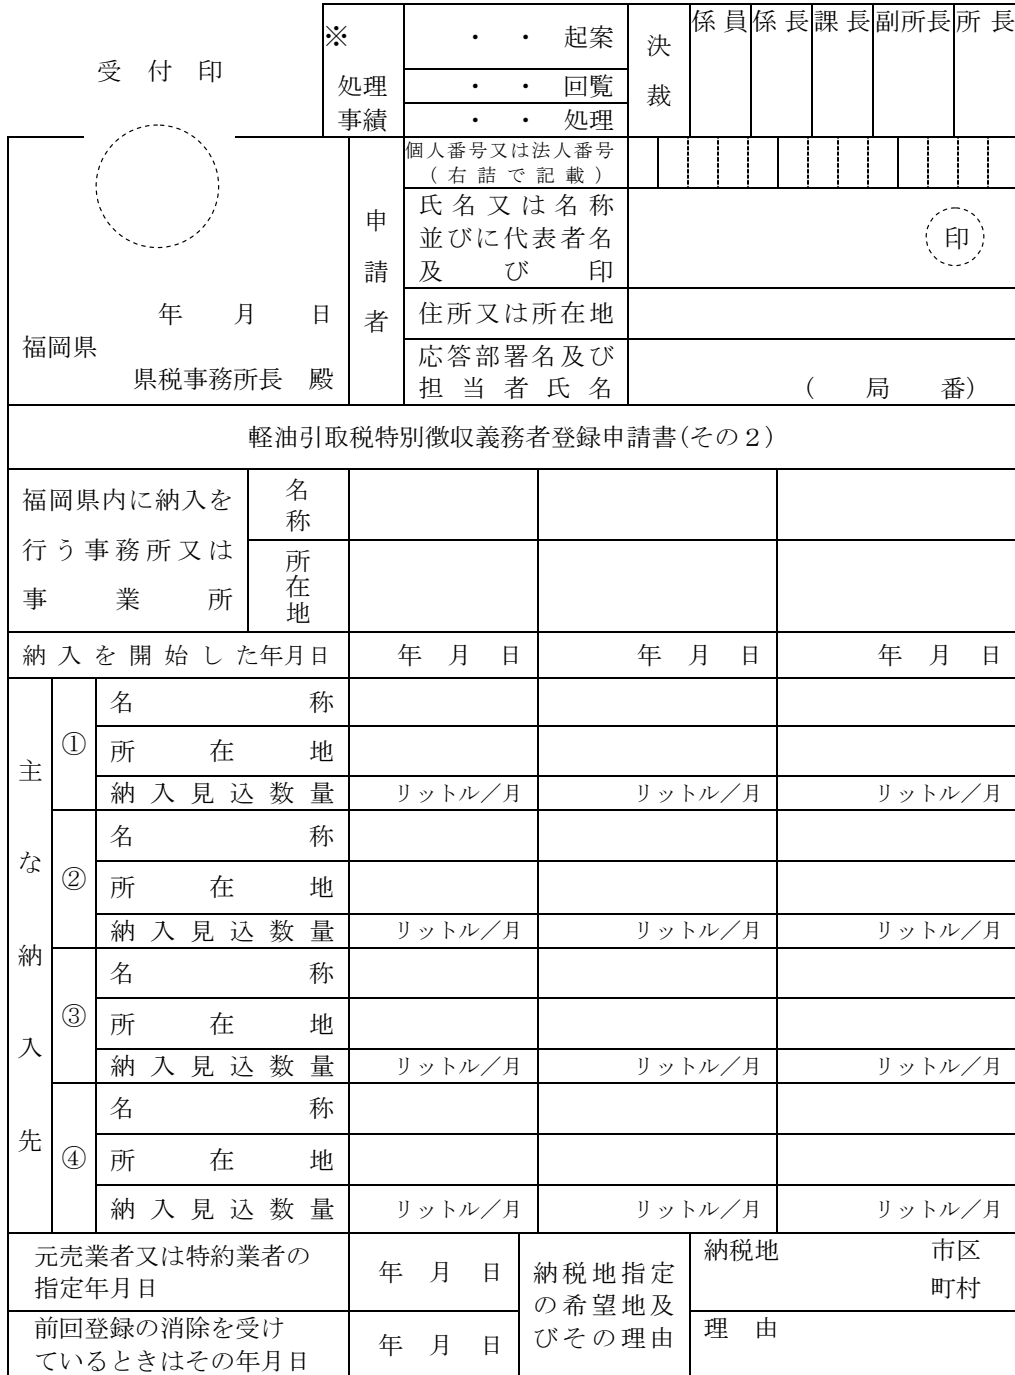 受 付 印
※
処理
事績
・ ・ 起案
・ ・ 回覧
・ ・ 処理
決
裁
係 員
係 長
課 長
副所長
所 長
年 月 日
福岡県
県税事務所長 殿
申
請
者
個人番号又は法人番号
(右詰で記載)
氏名又は名称
並びに代表者名
及び印
印
住所又は所在地
応答部署名及び
担当者氏名
( 局 番)
軽油引取税特別徴収義務者登録申請書(その2)
福岡県内に納入を
行う事務所又は
事業所
名称
所在地
納入を開始した年月日
年 月 日
年 月 日
年 月 日
主な納入先
①
名称
所在地
納入見込数量
リットル/月
リットル/月
リットル/月
②
名称
所在地
納入見込数量
リットル/月
リットル/月
リットル/月
③
名称
所在地
納入見込数量
リットル/月
リットル/月
リットル/月
④
名称
所在地
納入見込数量
リットル/月
リットル/月
リットル/月
元売業者又は特約業者の
指定年月日
年 月 日
前回登録の消除を受け
ているときはその年月日
年 月 日
納税地指定
の希望地及
びその理由
納税地 市区
町村
理 由